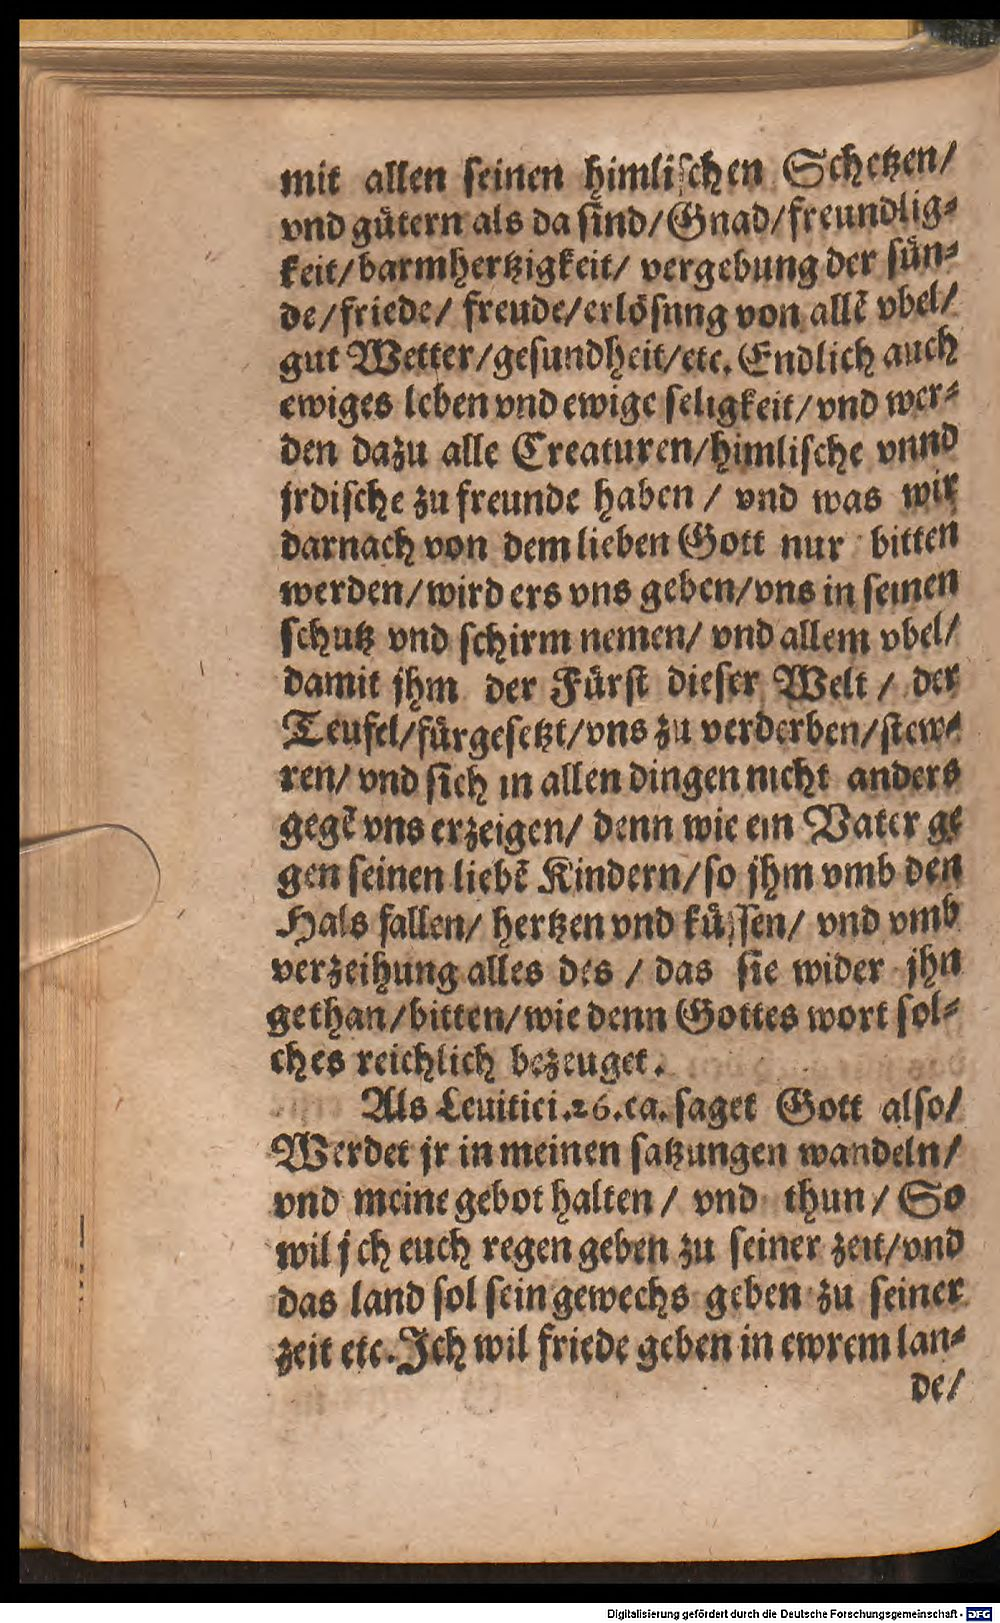 mit allen ſeinen himliſchen Schetzen/
vnd guͤtern als da ſind/Gnad/freundlig⸗
keit/barmhertzigkeit/ vergebung der ſuͤn⸗
de/friede/ freude/erloͤſung von allẽ vbel/
gut Wetter/geſundheit/etc. Endlich auch
ewiges leben vnd ewige ſeligkeit/vnd wer⸗
den dazu alle Creaturen/himliſche vnnd
jrdiſche zu freunde haben / vnd was wir
darnach von dem lieben Gott nur bitten
werden/wird ers vns geben/vns in ſeinen
ſchutz vnd ſchirm nemen/ vnd allem vbel/
damit jhm der Fuͤrſt dieſer Welt / der
Teufel/fuͤrgeſetzt/vns zu verderben/ſtew⸗
ren/ vnd ſich in allen dingen nicht anders
gegẽ vns erzeigen/ denn wie ein Vater ge
gen ſeinen liebẽ Kindern/ſo jhm vmb den
Hals fallen/ hertzen vnd kuͤſſen/ vnd vmb
verzeihung alles des / das ſie wider jhn
gethan/bitten/wie denn Gottes wort ſol⸗
ches reichlich bezeuget.
Als Leuitici.26.ca.ſaget Gott alſo/
Werdet jr in meinen ſatzungen wandeln/
vnd meine gebot halten / vnd thun/ So
wil jch euch regen geben zu ſeiner zeit/vnd
das land ſol ſein gewechs geben zu ſeiner
zeit etc. Jch wil friede geben in ewrem lan⸗
de/
Digitalisierung gefördert durch die Deutsche Forschungsgemeinschaft - DFG